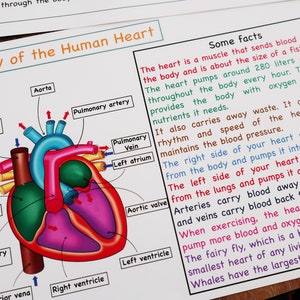 through the body
y of the Human Heart
Aorta
Pulmonary artery
Pulmonary
Vein
Left atrium
Aortic valve
Left ventricle
Right ventricle
ar vena
Some facts
The heart is a muscle that sends blood
the body and is about the size of a fis
The heart pumps around 280 liters
throughout the body every hour. T
provides the body with oxygen
nutrients it needs.
It also carries away waste. It c
rhythm and speed of the he
maintains the blood pressure.
The right side of your heart
from the body and pumps it int
The left side of your heart
from the lungs and pumps it o
Arteries carry blood away
and veins carry blood back
When exercising, the hear
pump more blood and oxyg
The fairy fly, which is a
smallest heart of any livi
Whales have the larges